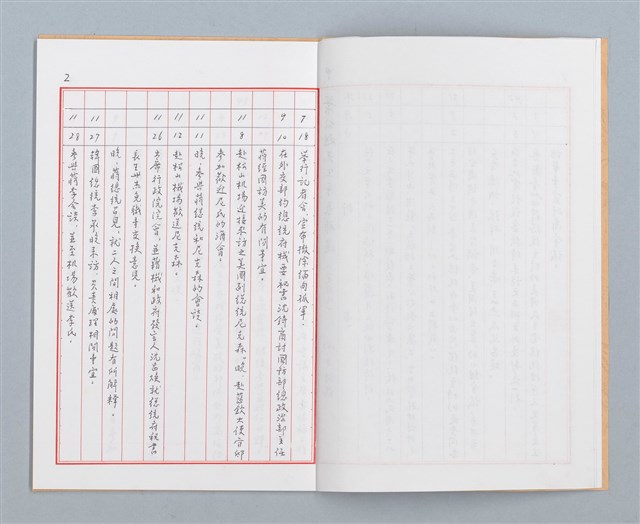 2
7 18 举行記者会,宣布撤除缅甸孤軍。
9 10 在外交部约總統府機要秘書沈錡商討國防部總政治部主任
蒋经國訪美的有関事宜。
11 8 赴松山机場迎接來訪之美國副統統尼克森。晚,赴蓝欽大使官邸
參加歡迎尼氏的酒會。
11 11 晚,參與蒋總統和尼克森的會談。
11 12 赴松山機場歡送尼克森。
11 26 出席行政院院會,並藉機和政府發言人沈昌煥就總統府秘書
長王世杰免職事交換意見。
晚,蒋總統召見,就二人之間相處的問題有所解釋。
11 27 韓國總統李承晚來訪,負責處理相関事宜。
11 28 參與蒋李會談,並至机場歡送李氏。